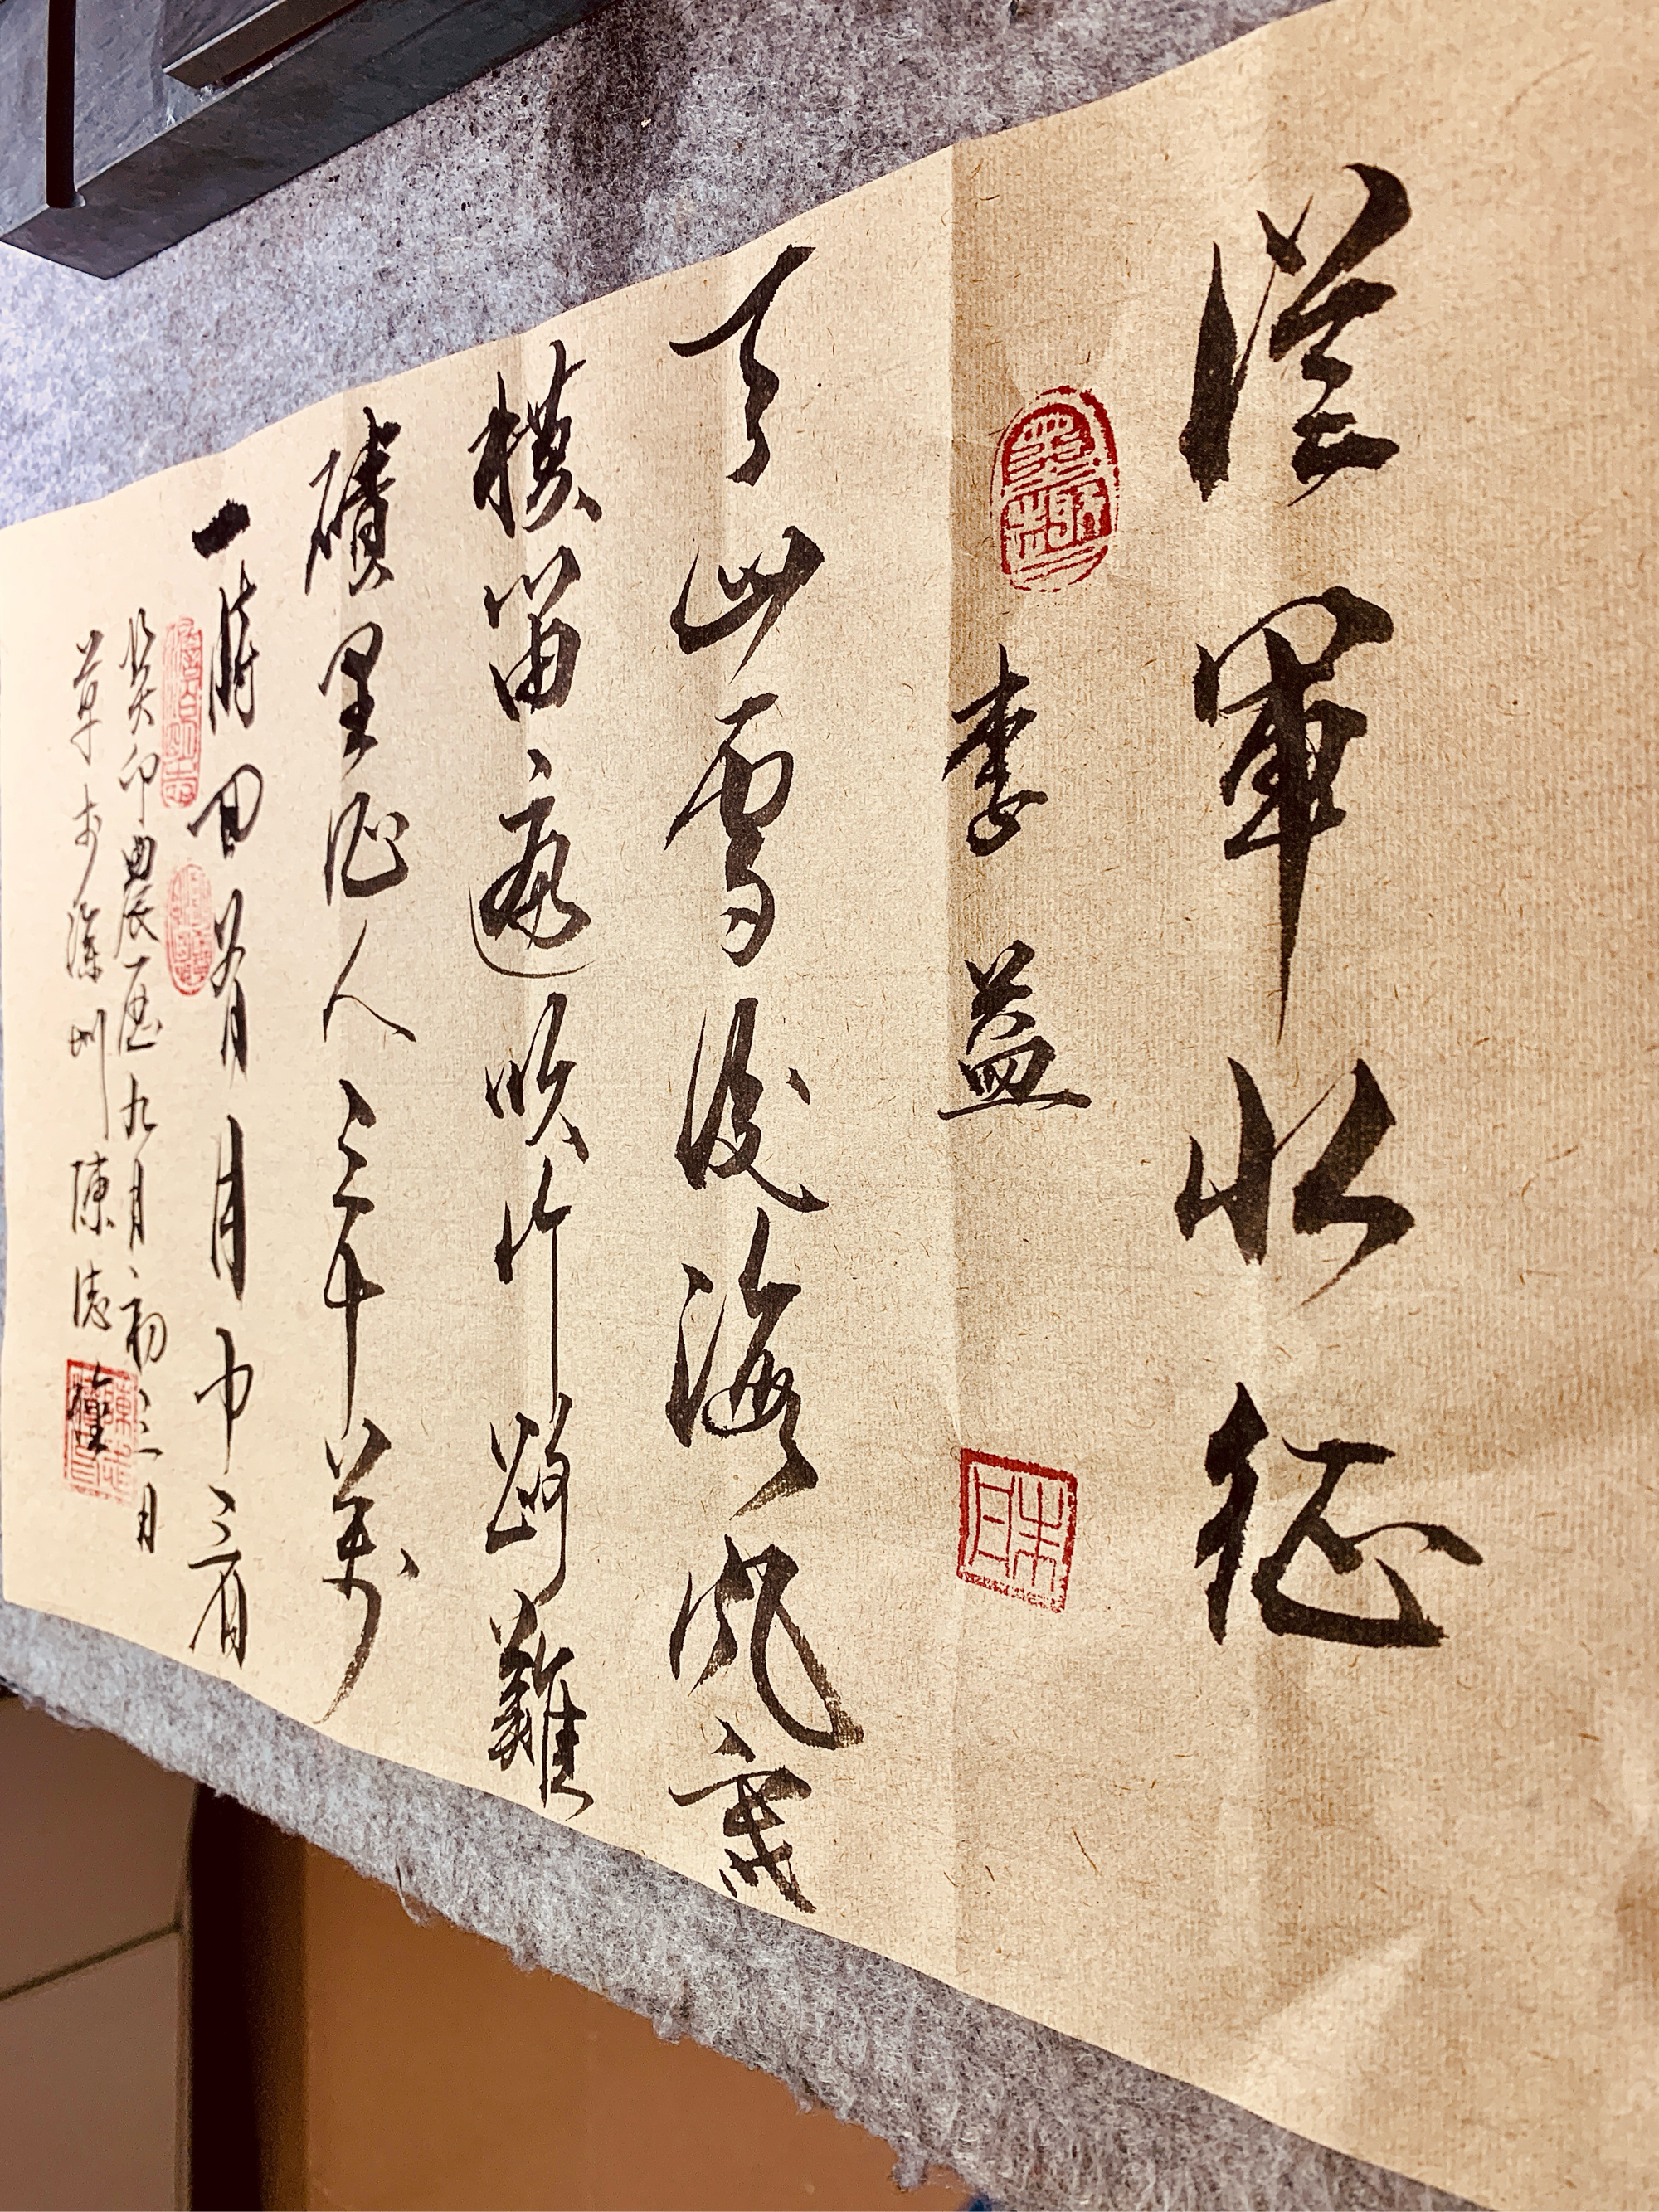 從軍北征
李益
天山雪後海風寒
橫笛遍吹行路難
磧里征人三十萬
一時回首月中看
癸卯農曆九月初三日
草於深圳陳